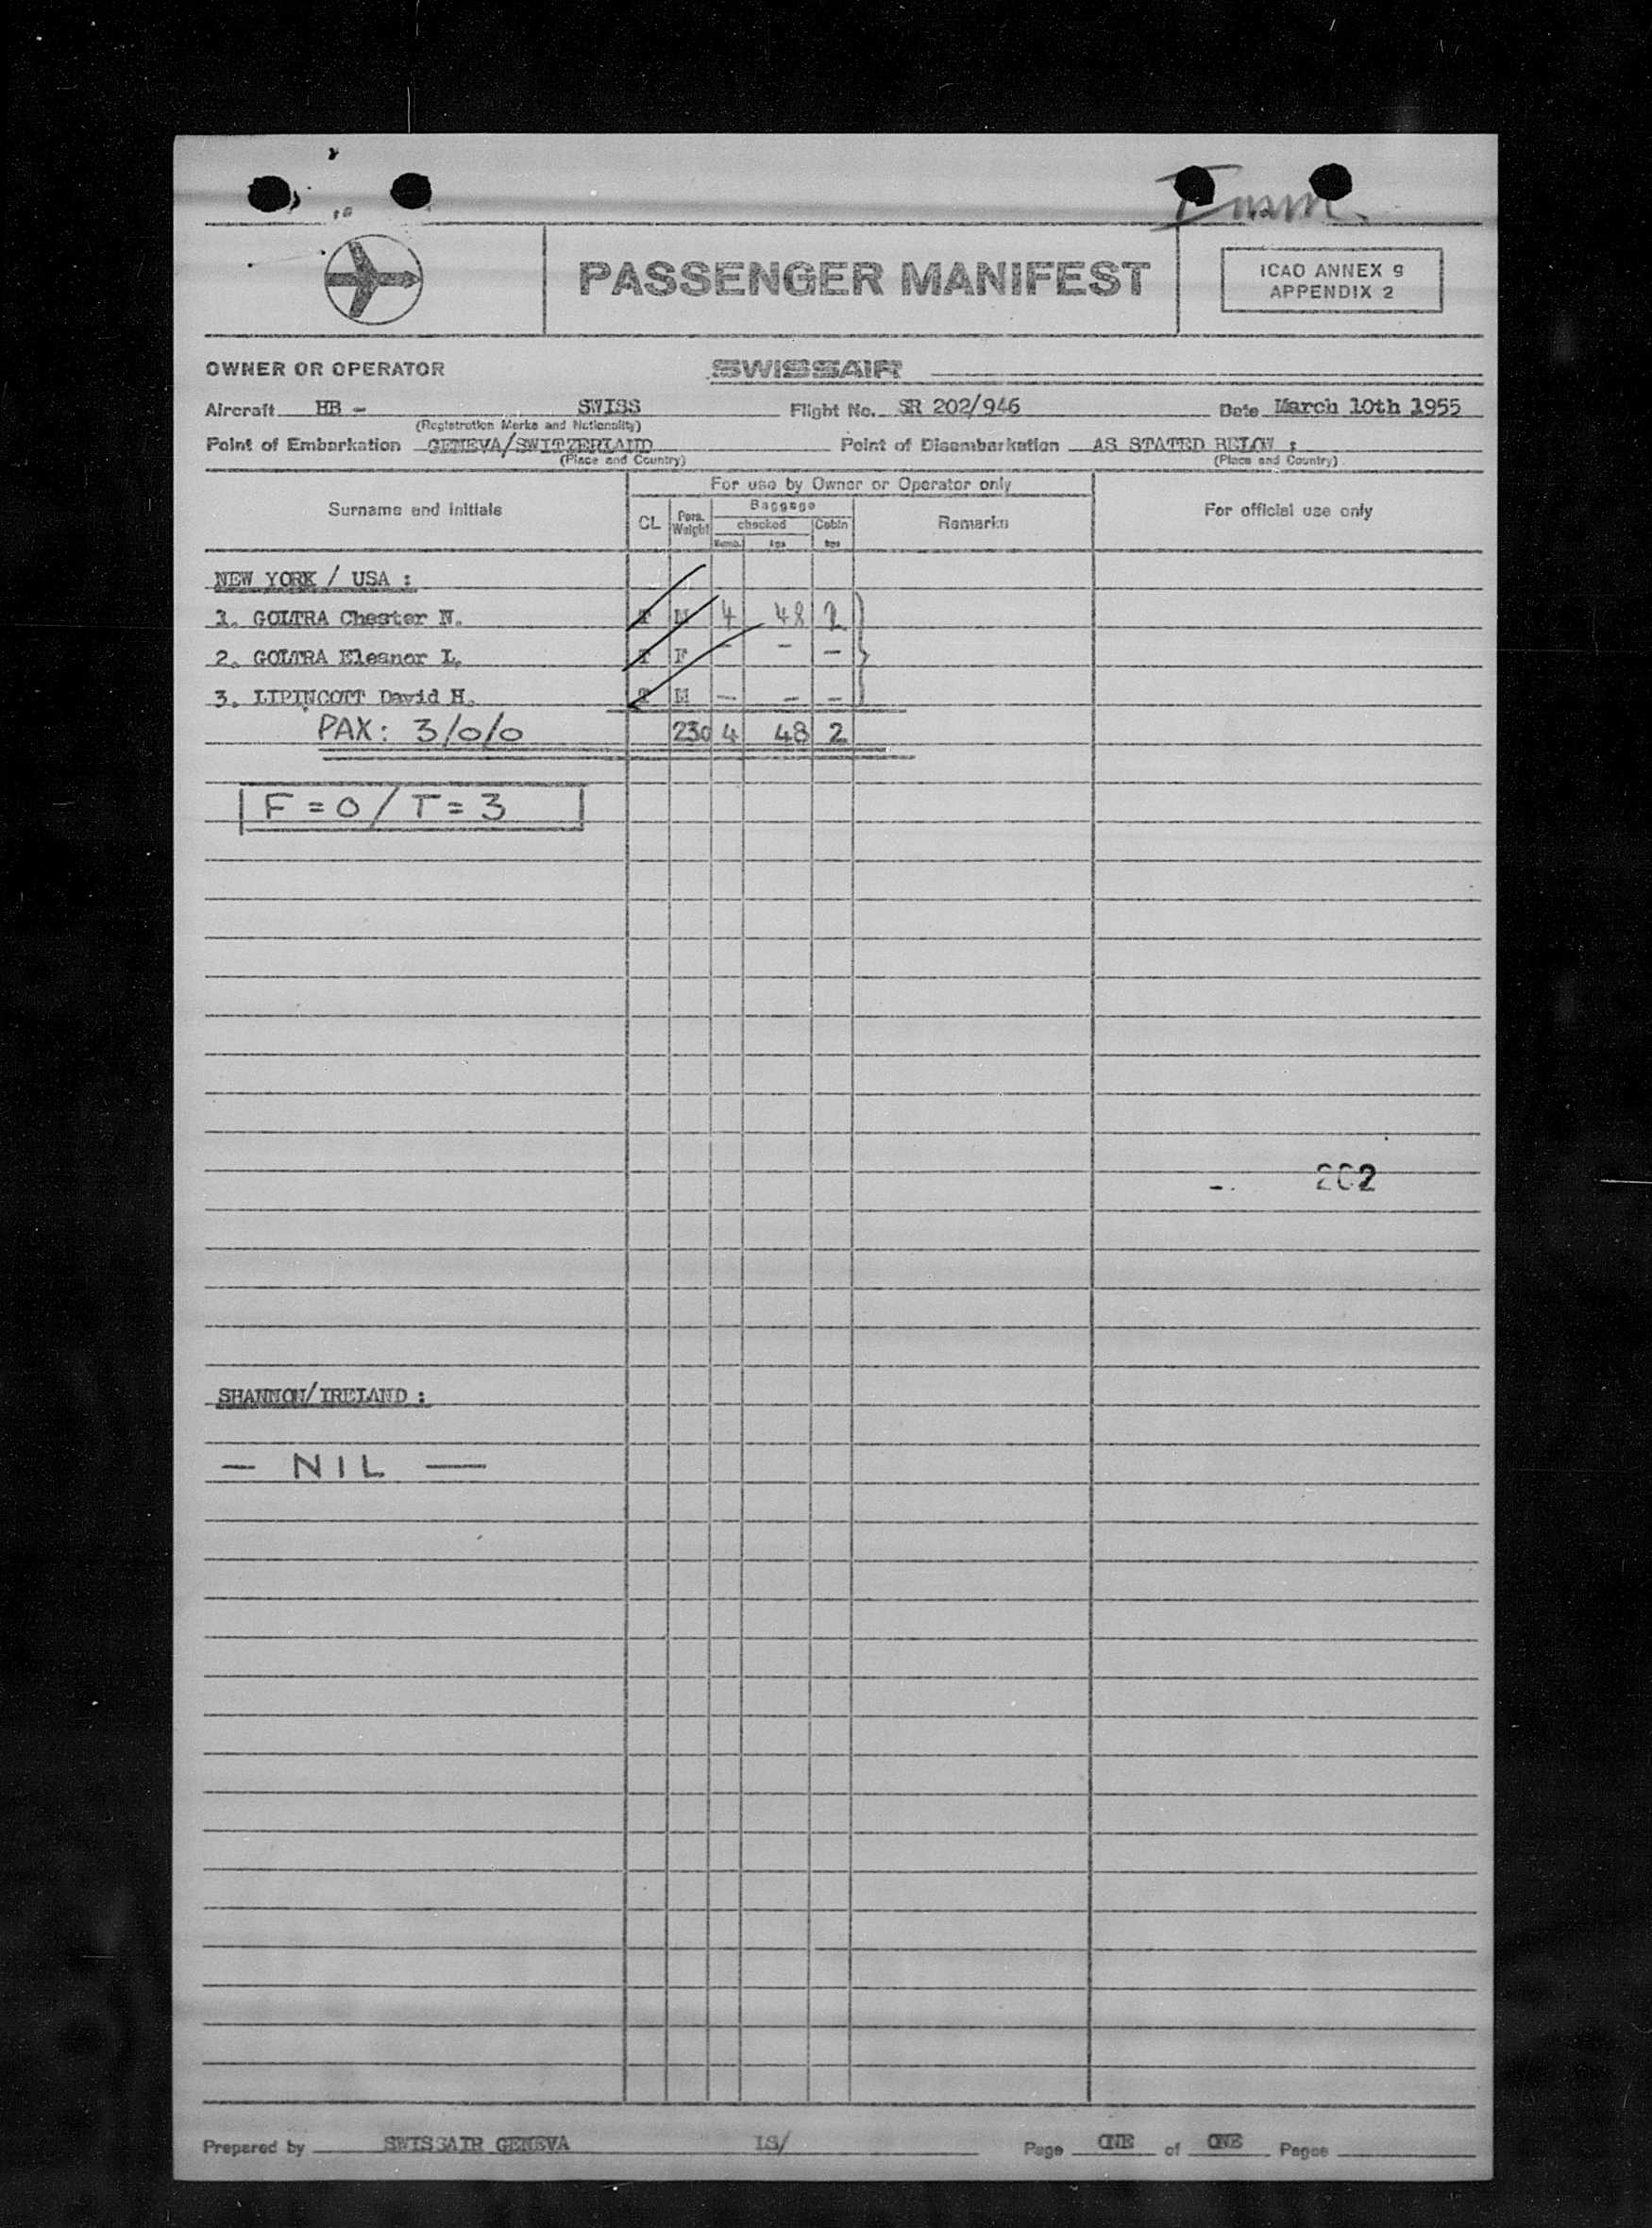 PASSENGER MANIFEST
ICAO ANNEX 9
APPENDIX 2
OWNER OR OPERATOR SWISSAIR
Aircraft HB - SWISS Flight No. SR 202/946 Date March 10th 1955
(Registration Marks and Nationality)
Point of Embarkation GENEVA/SWITZERLAND Point of Disembarkation AS STATED BELOW :
(Place and Country) (Place and Country)
For use by Owner or Operator only
Surname and initials CL Pers. Weight Baggage checked Numb. kgs Cabin kgs Remarks For official use only
NEW YORK / USA :
1. GOLTRA Chester N. T M 4 48 2
2. GOLTRA Eleanor L. T F - - -
3. LIPINCOTT David H. T M - - -
PAX: 3/0/0 230 4 48 2
F = 0 / T = 3
202
SHANNON/IRELAND :
- NIL -
Prepared by SWISSAIR GENEVA IS/ Page ONE of ONE Pages